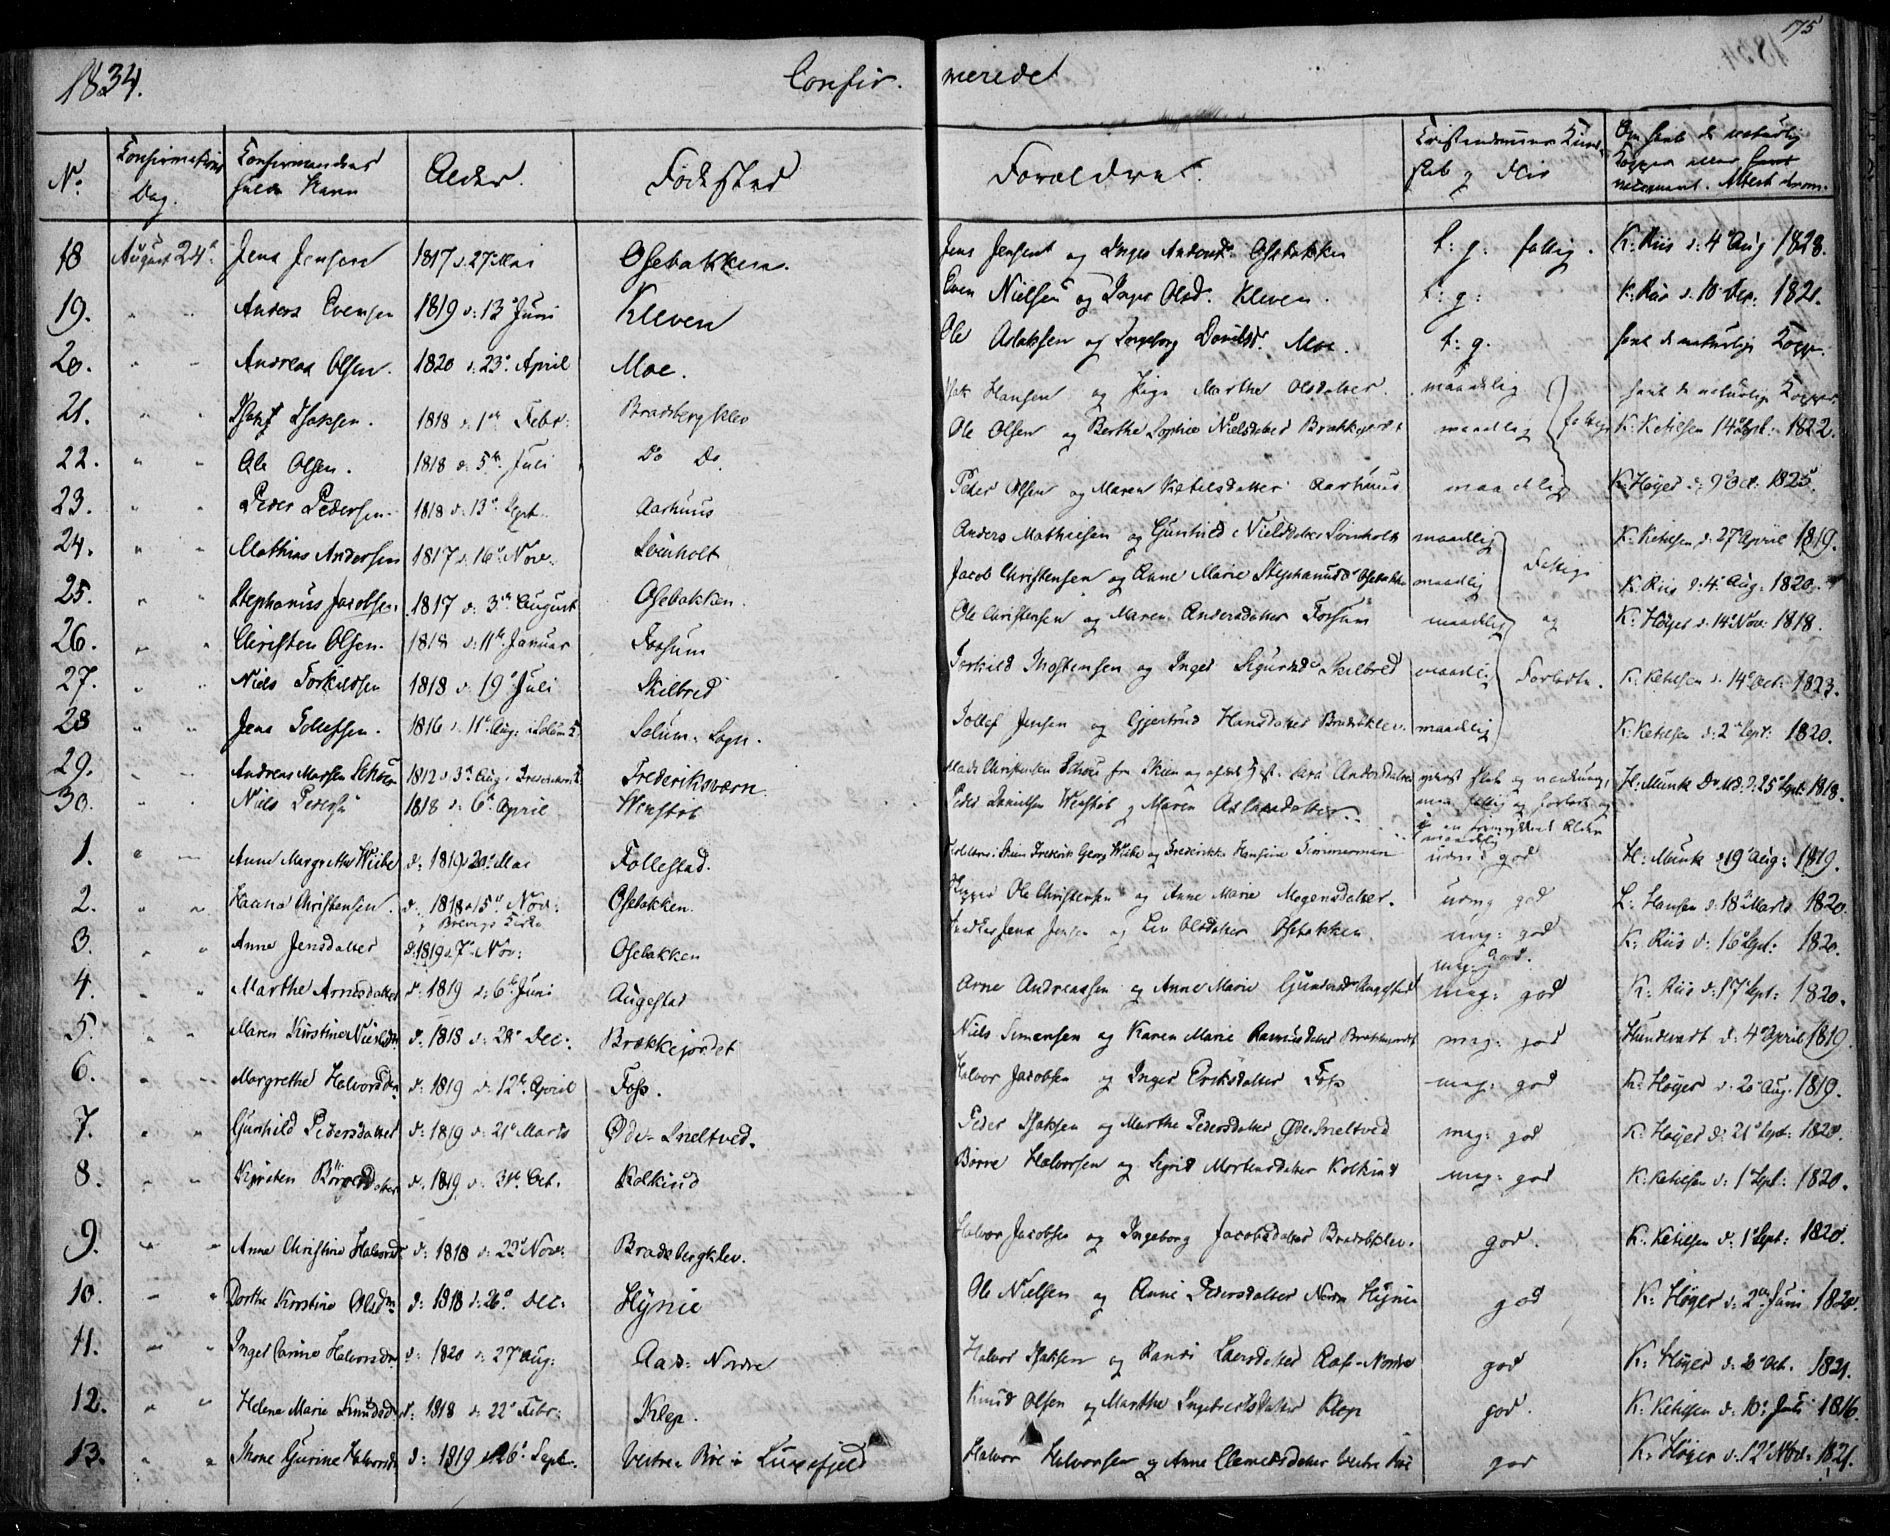 175
1834. Confir. merede
No Confirmations Dag. Confirmandens fulde Navn Alder. Fødested Forældre. Christendomme Kund- skab og Flid Om havt de naturlig Kopper eller
18 August 24 Jens Jensen 1817 d. 27 Mai Osebakken. Jens Jensen og Inger Andersd. Osebakken t: g: fattig. K: Riis d: 4 Aug 1828.
19. Anders Evensen 1819 d: 13 Juni Kleven Even Nielsen og Inger Olsd. Kleven. t: g: K: Riis d: 10 Sep. 1821.
20. Andreas Olsen. 1820 d: 23 April Moe. Ole Aslaksen og Ingeborg Davidsd. Moe. t: g. havt de naturlige Kopper.
21. Isak Isaksen. 1818 d. 1ste Febr: Bradsbergklev Isak Hansen og Marthe Olsdatter. maadelig havt de naturlige Kopper
22. Ole Olsen. 1818 d: 5te Juli Do Do. Ole Olsen og Berthe Sophie Nielsdatter Brækkejordet maadelig fattige K: Ketilsen 14 Sept: 1822.
23. Peder Pedersen. 1818 d. 13 Sept. Aarhuus Peder Olsen og Maren Ketelsdatter Aarhuus maadelig K: Høyer d: 9 Oct: 1825.
24. Mathias Andersen 1817 d. 16 Nov. Lønholt Anders Mathiesen og Gunhild Nielsdatter Lønholt maadelig K: Ketilsen d: 27 April 1819.
25. Stephanus Jacobsen 1817 d. 3die August Osebakken. Jacob Christensen og Anne Marie Stephanusd. Osebakken maadelig Fattige K: Riis d: 4 Aug: 1820.
26. Christen Olsen. 1818 d: 11te Januar Fossum Ole Christensen og Maren Andersdatter Fossum maadelig og K: Høyer d. 14 Nov: 1818.
27. Niels Torkildsen 1818 d. 19 Juli Skilbred Torkild Thostensen og Inger Sigurdsd. Skilbred maadelig Forladte. K: Ketilsen d. 14 Oct: 1823.
28 Jens Tollefsen. 1816 d. 11te Aug: i Solum K. Solum: Sogn. Tollef Jensen og Gjertrud Hansdatter Bradsbklev. maadelig K: Ketilsen d: 2 Sept: 1820.
29. Andreas Madsen 1812 d 3 Aug: Frederiksværn Mads Christensen fra Skien og Andersdatter yderst slab og H: Munk 25 Sept: 1818.
30. Niels Peders. 1818 d: 6 April Wenstøb Peder Danielsen Wenstøb og Maren Aslaksdatter. maadelig
1. Anne Margrethe Wiibe d: 1819 20 Mai Follestad. Skien Frederik Georg Wiibe og Frederikke Hansine Timmerman udm: god H: Munk d 19 Aug: 1819.
2. Hanna Christensen. d. 1818 d 15de Nov: i Brevigs Kirke Osebakken. Ole Christensen og Anne Marie Mogensdatter. udm: god L: Hansen d: 18 Marts 1820.
3. Anne Jensdatter d: 1819 d. 7 Nov: Osebakken Jens Jensen og Liv Olsdatter Osebakken. meg: god K: Riis d: 16 Sept: 1820.
4. Marthe Arnesdatter d. 1819 d: 6te Juni Augestad Arne Andreassen og Anne Marie Gundersdr Augestad meg: god K: Riis d: 17 Sept: 1820.
5. Maren Kirstine Nielsdr. d. 1818 d: 28 Dec: Brækkejordet Niels Simensen og Karen Marie Rasmusdatter Brækkejordet meg: god Hundevadt d: 4 April 1819.
6. Margrethe Halvorsdr. d: 1819 d: 12te April Foss. Halvor Jacobsen og Inger Eriksdatter Foss meg: god K: Høyer d. 20 Aug. 1819.
7. Gunhild Pedersdatter d: 1819 d: 21 Marts Øde-Sneltved. Peder Isaksen og Marthe Pedersdatter Øde Sneltved meg: god K: Høyer d: 21 Sept: 1820.
8. Kirsten Børresdatter d. 1819 d: 31 Oct. Kolkind Børre Halvorsen og Sigrid Mortensdatter Kolkind meg: god K: Ketilsen d: 1 Sept: 1820.
9. Anne Christine Halvorsdr d: 1818 d: 22 Nov: Bradsbergklev. Halvor Jacobsen og Ingeborg Jacobsdatter Bradsbklev. god. K: Ketilsen d: 1 Sept: 1820.
10. Dorthe Kirstine Olsdr d: 1818 d: 26 Dec: Hynie Ole Nielsen og Anne Pedersdatter Nordre Hynie god K: Høyer d: 2den Juni 1820.
11. Inger Carine Halvorsdr d: 1820 d: 27 Aug: Aas: Nordre Halvor Isaksen og Randi Larsdatter Aas-Nordre god K: Høyer d: 20 Oct. 1821.
12. Helene Marie Knudsdr d: 1818 d: 22 Febr: Klep. Knud Olsen og Marthe Ingebretsdatter Klep god. K: Ketilsen d: 10 Juli 1816.
13. Thone Gurine Halvorsdr d: 1819 d 26 Sept. Vestre Bøe i Luxefjeld Halvor Halvorsen og Anne Clemetsdatter Vestre Bøe god K: Høyer d. 12 Nov. 1821.